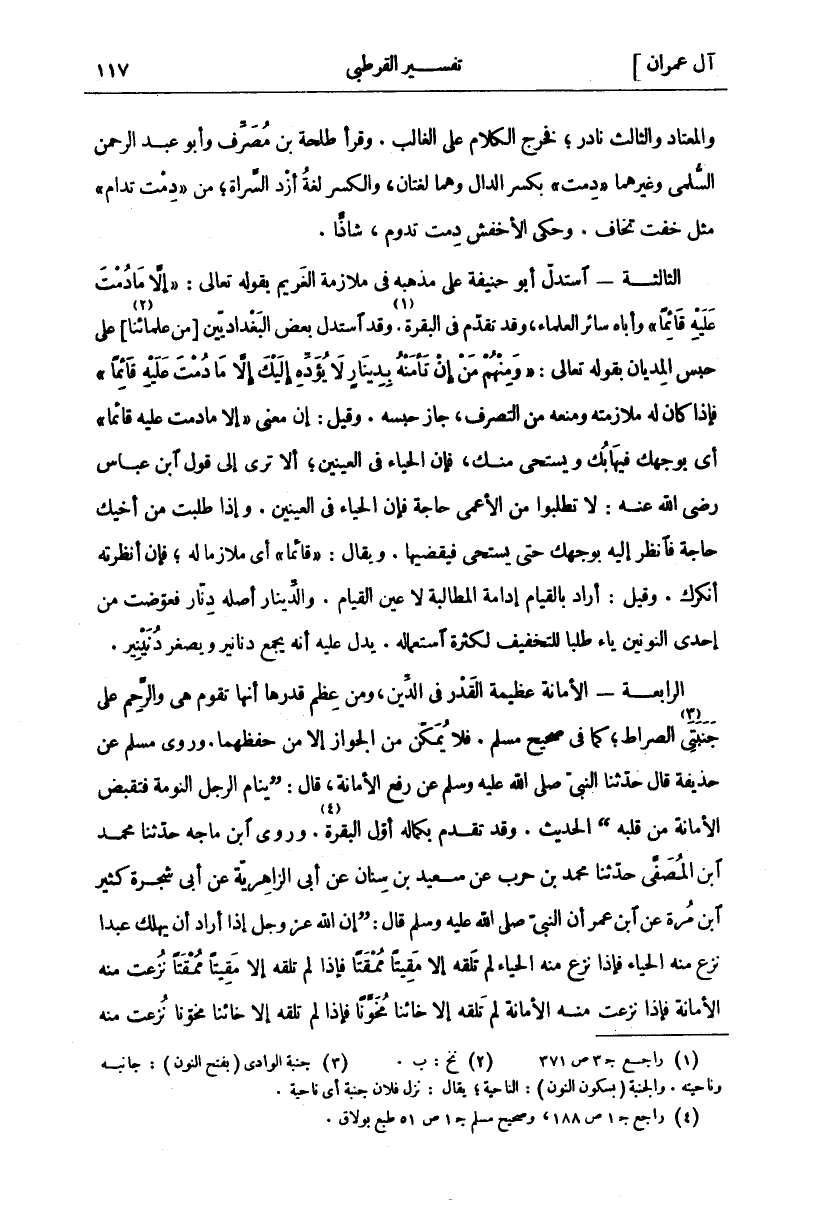 آل عمران ] تفســير القرطبى ١١٧
والمعتاد والثالث نادر ؛ فخرج الكلام على الغالب . وقرأ طلحة بن مُصَرِّف وأبو عبد الرحمن
السُّلمى وغيرهما «دِمت» بكسر الدال وهما لغتان، والكسر لغةُ أزْد السَّراة؛ من «دِمْت تدام»
مثل خفت تخاف . وحكى الأخفش دِمت تدوم ، شاذًّا .
الثالثــة — آستدلّ أبو حنيفة على مذهبه فى ملازمة الغَريم بقوله تعالى : «إلَّا مَادُمْتَ
عَلَيْهِ قَائِمًا» وأباه سائر العلماء، وقد تقدّم فى البقرة(١). وقد آستدل بعض البَغْداديّين [من علمائنا](٢) على
حبس المِديان بقوله تعالى : «وَمِنْهُمْ مَنْ إنْ تَأمَنْهُ بِدِينَارٍ لَا يُؤَدِّهِ إلَيْكَ إلَّا مَا دُمْتَ عَلَيْهِ قَائِمًا »
فإذا كان له ملازمته ومنعه من التصرف، جاز حبسه . وقيل : إن معنى «إلا مادمت عليه قائما»
أى بوجهك فيهَابُك ويستحى منــك، فإن الحياء فى العينين؛ ألا ترى إلى قول آبن عبــاس
رضى الله عنــه : لا تطلبوا من الأعمى حاجة فإن الحياء فى العينين . وإذا طلبت من أخيك
حاجة فآنظر إليه بوجهك حتى يستحى فيقضيها . ويقال : «قائما» أى ملازما له ؛ فإن أنظرته
أنكرك . وقيل : أراد بالقيام إدامة المطالبة لا عين القيام . والدِّينار أصله دِنّار فعوّضت من
إحدى النونين ياء طلبا للتخفيف لكثرة آستعماله . يدل عليه أنه يجمع دنانير ويصغر دُنَيْنِير .
الرابعــة — الأمانة عظيمة القَدْر فى الدِّين، ومن عِظم قدرها أنها تقوم هى والرَّحِم على
جَنَبَتَىِ(٣) الصراط؛ كما فى صحيح مسلم . فلا يُمَكّن من الجواز إلا من حفظهما. وروى مسلم عن
حذيفة قال حدّثنا النبىّ صلى الله عليه وسلم عن رفع الأمانة، قال : ”ينام الرجل النومة فتقبض
الأمانة من قلبه “ الحديث . وقد تقدم بكماله أوّل البقرة(٤) . وروى آبن ماجه حدّثنا محمــد
آبن المُصَفَّى حدّثنا محمد بن حرب عن سـعيد بن سِنان عن أبى الزاهِريّة عن أبى شجـرة كثير
آبن مُرة عن آبن عمر أن النبىّ صلى الله عليه وسلم قال : ”إن الله عز وجل إذا أراد أن يهلك عبدا
نزع منه الحياء فإذا نزع منه الحياء لم تَلقه إلا مَقِيتاً مُمَقَّتًا فإذا لم تلقه إلا مَقِيتاً مُمَقَّتاً نُزعت منه
الأمانة فإذا نزعت منــه الأمانة لم تَلقه إلا خائنا مُخَوَّنًا فإذا لم تلقه إلا خائنا مخوّنا نُزعت منه
(١) راجــع جـ٣ ص ٣٧١ (٢) نخ : ب . (٣) جنبة الوادى (بفتح النون) : جانبــه
وناحيته . والجنبة (بسكون النون) : الناحية ؛ يقال : نزل فلان جنبة أى ناحية .
(٤) راجع جـ١ ص ١٨٨، وصحيح مسلم جـ١ ص ٥١ طبع بولاق .